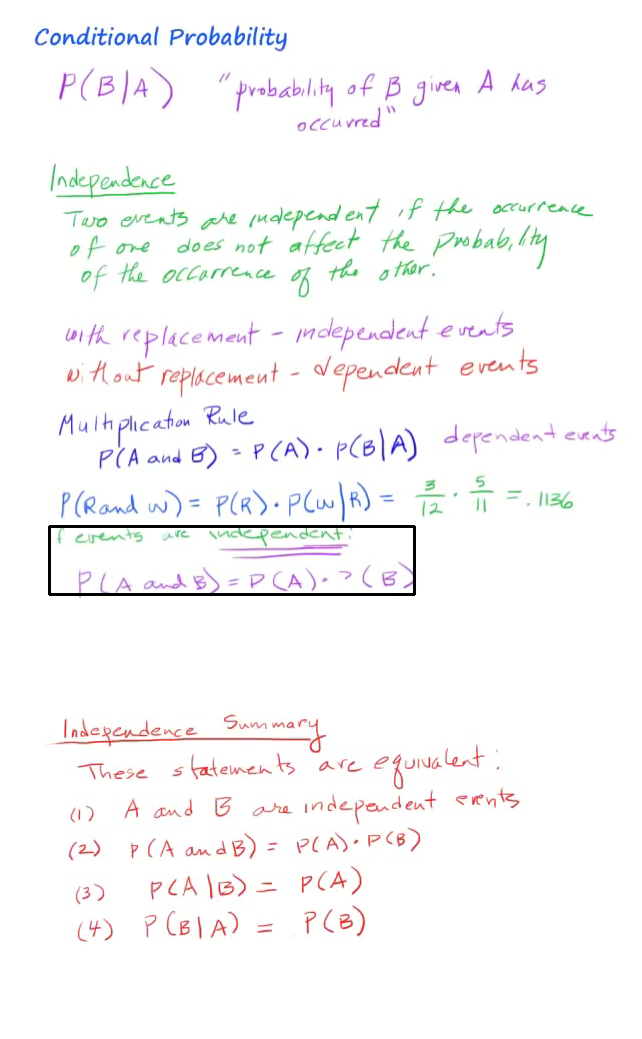 Conditional Probability
P(B|A) "probability of B given A has
occurred"
Independence
Two events are independent if the occurrence
of one does not affect the probability
of the occurrence of the other.
with replacement - independent events
without replacement - dependent events
Multiplication Rule
P(A and B) = P(A) · P(B|A) dependent events
P(R and W) = P(R) · P(W|R) = 3/12 · 5/11 = .1136
f events are independent:
P(A and B) = P(A) · P(B)
Independence Summary
These statements are equivalent:
(1) A and B are independent events
(2) P(A and B) = P(A) · P(B)
(3) P(A|B) = P(A)
(4) P(B|A) = P(B)